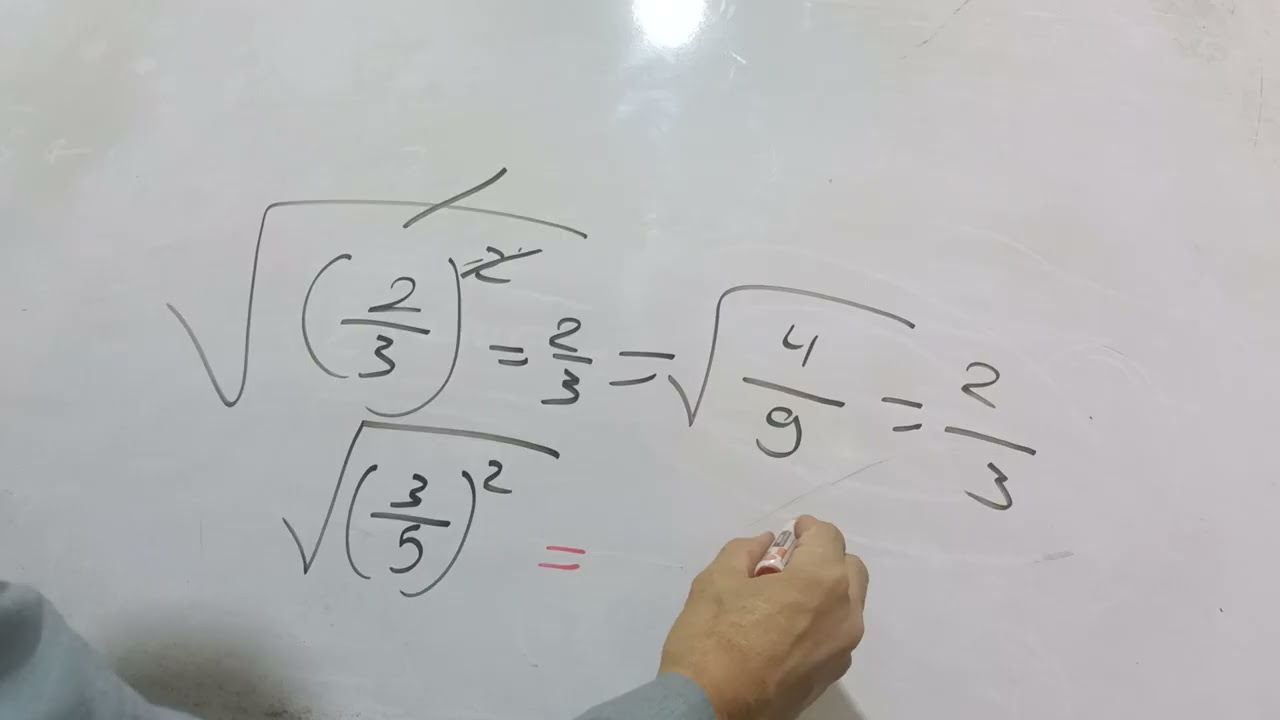 √(2/3)² = 2/3 = √4/9 = 2/3
√(3/5)² =